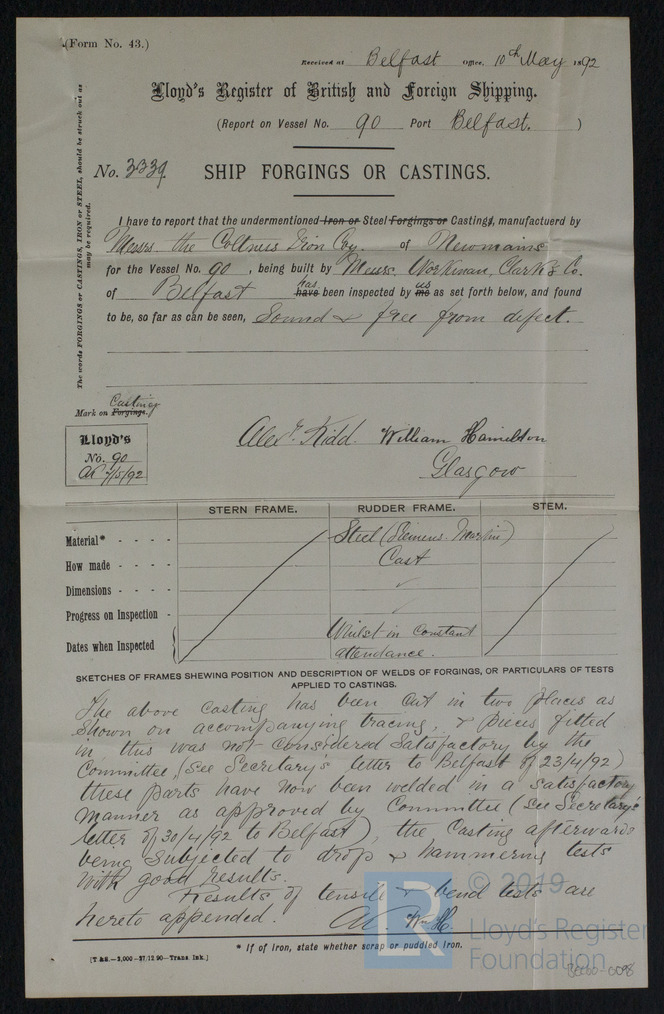 (Form No. 43.)
Received at Belfast Office, 10th May 1892
Lloyd's Register of British and Foreign Shipping.
(Report on Vessel No. 90 Port Belfast. )
No. 3339. SHIP FORGINGS OR CASTINGS.
The words FORGINGS or CASTINGS, IRON or STEEL, should be struck out as may be required.
I have to report that the undermentioned Iron or Steel Forgings or Castings, manufactuerd by
Messrs. the Coltness Iron Coy. of Newmains
for the Vessel No. 90 , being built by Messrs. Workman, Clark & Co.
of Belfast has have been inspected by us me as set forth below, and found
to be, so far as can be seen, Sound & free from defect.
Casting
Mark on Forgings.
Lloyd's
No. 90
AK 7/5/92
Alexr. Kidd. William Hamilton
Glasgow
STERN FRAME. RUDDER FRAME. STEM.
Material* - - - - Steel (Siemens-Martin)
How made - - - - Cast
Dimensions - - - - ✓
Progress on Inspection - - ✓
Dates when Inspected { Whilst in constant
attendance.
SKETCHES OF FRAMES SHEWING POSITION AND DESCRIPTION OF WELDS OF FORGINGS, OR PARTICULARS OF TESTS
APPLIED TO CASTINGS.
The above casting has been cut in two places as
shown on accompanying tracing, & pieces fitted
in this was not considered satisfactory by the
Committee, (see Secretary's letter to Belfast of 23/4/92)
these parts have now been welded in a satisfactory
manner as approved by Committee (see Secretary's
letter of 30/4/92 to Belfast), the Casting afterwards
being subjected to drop & hammering tests
with good results.
Results of tensile & bend tests are
hereto appended. AK W.H.
* If of Iron, state whether scrap or puddled Iron.
[T & S.—3,000—37/12/90—Trans. Ink.]
© 2019
LR
Lloyd's Register
Foundation